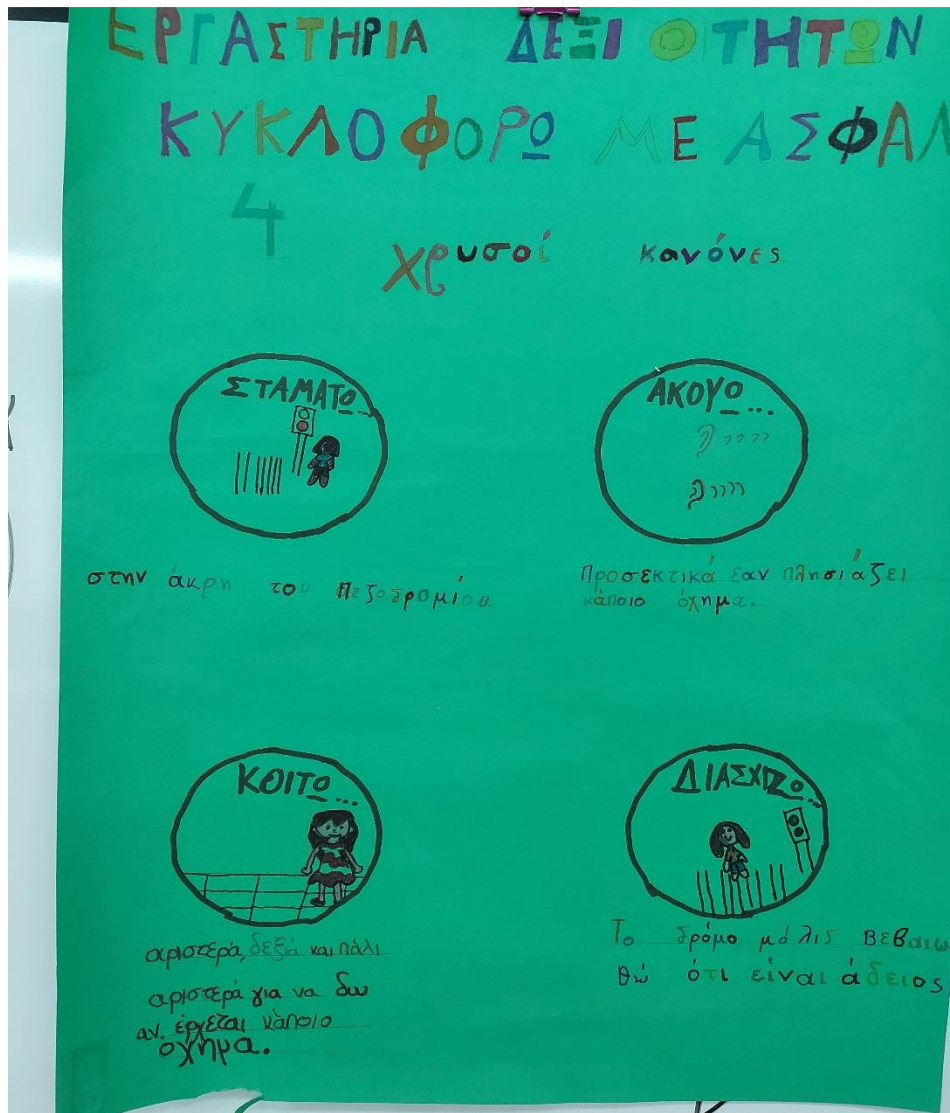 ΕΡΓΑΣΤΗΡΙΑ ΔΕΞΙΟΤΗΤΩΝ
ΚΥΚΛΟΦΟΡΩ ΜΕ ΑΣΦΑΛ
4
χρυσοί κανόνες
ΣΤΑΜΑΤΩ...
στην άκρη του πεζοδρομίου.
ΑΚΟΥΩ...
Προσεκτικά εαν πλησιάζει
κάποιο όχημα.
ΚΟΙΤΩ...
αριστερά, δεξιά και πάλι
αριστερά για να δω
αν. έρχεται κάποιο
όχημα.
ΔΙΑΣΧΙΖΩ...
Το δρόμο μόλις βεβαιω
θώ ότι είναι άδειος